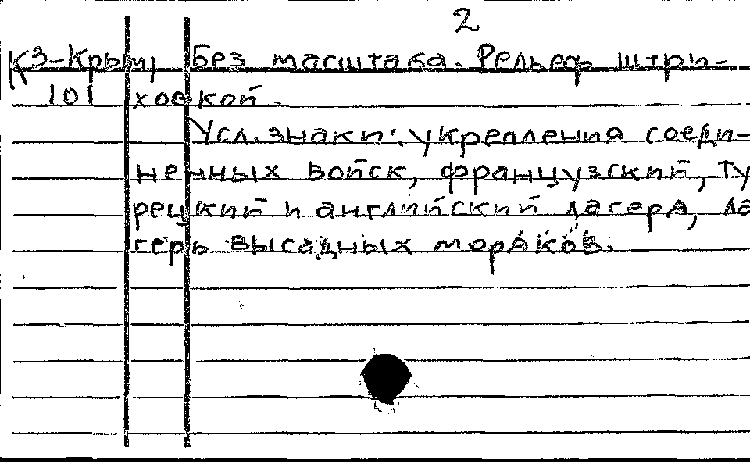 2
К3-Крым, Без масштаба. Рельеф штри-
101 ховкой.
Усл. знаки: укрепления соеди-
ненных войск, французский, ту
рецкий и английский лагеря, ла
герь высадных моряков.